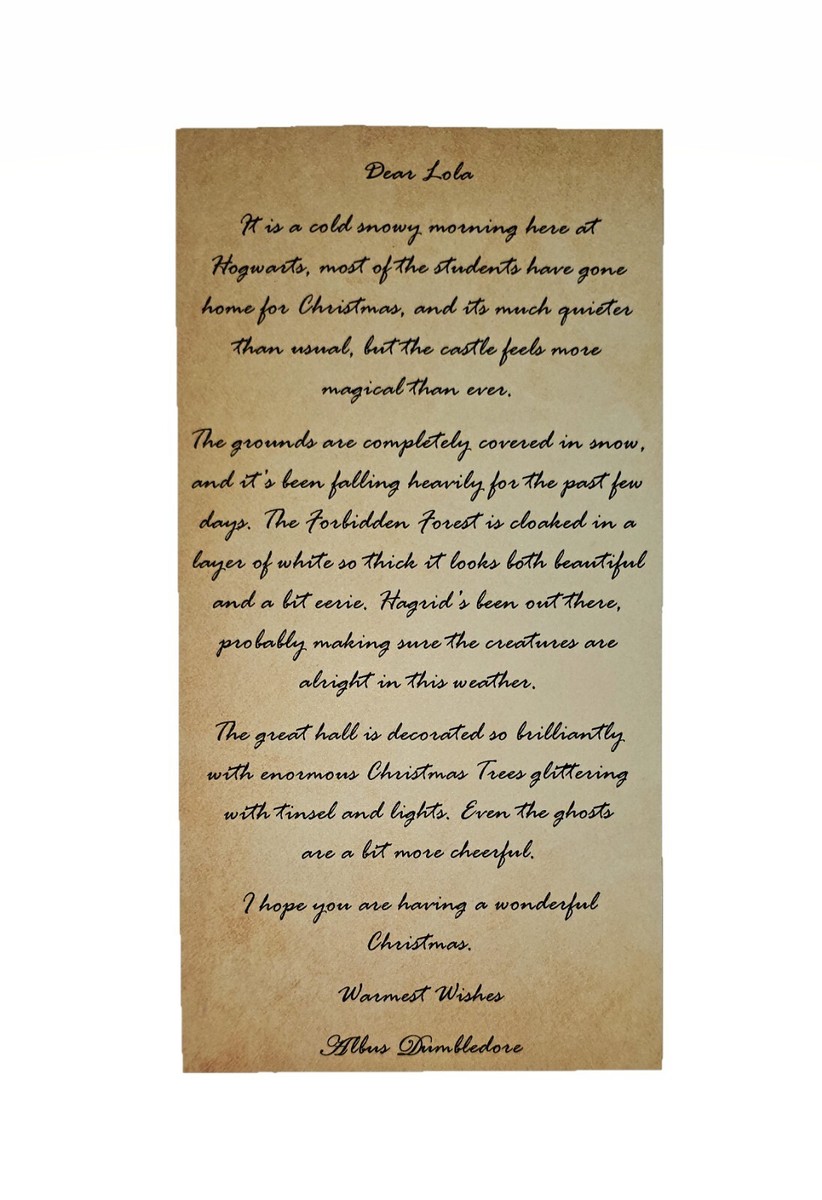 Dear Lola
It is a cold snowy morning here at
Hogwarts, most of the students have gone
home for Christmas, and its much quieter
than usual, but the castle feels more
magical than ever.
The grounds are completely covered in snow,
and it's been falling heavily for the past few
days. The Forbidden Forest is cloaked in a
layer of white so thick it looks both beautiful
and a bit eerie. Hagrid's been out there,
probably making sure the creatures are
alright in this weather.
The great hall is decorated so brilliantly
with enormous Christmas Trees glittering
with tinsel and lights. Even the ghosts
are a bit more cheerful.
I hope you are having a wonderful
Christmas.
Warmest Wishes
Albus Dumbledore